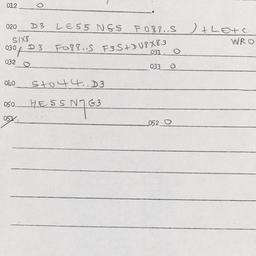 012 0
020 D3 LE55 NG5 F089..S ) + LO+C
SIX8 WRO
030 D3 F089..S F3S+JUPX8.3 031 0
032 0 033 0
040 S+044..D3
050 HE55 N7G3
051
052 0